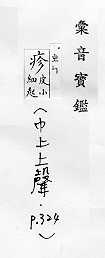 彙音寶鑑
疹
皮小
細起
〈巾上上聲·
p.324〉